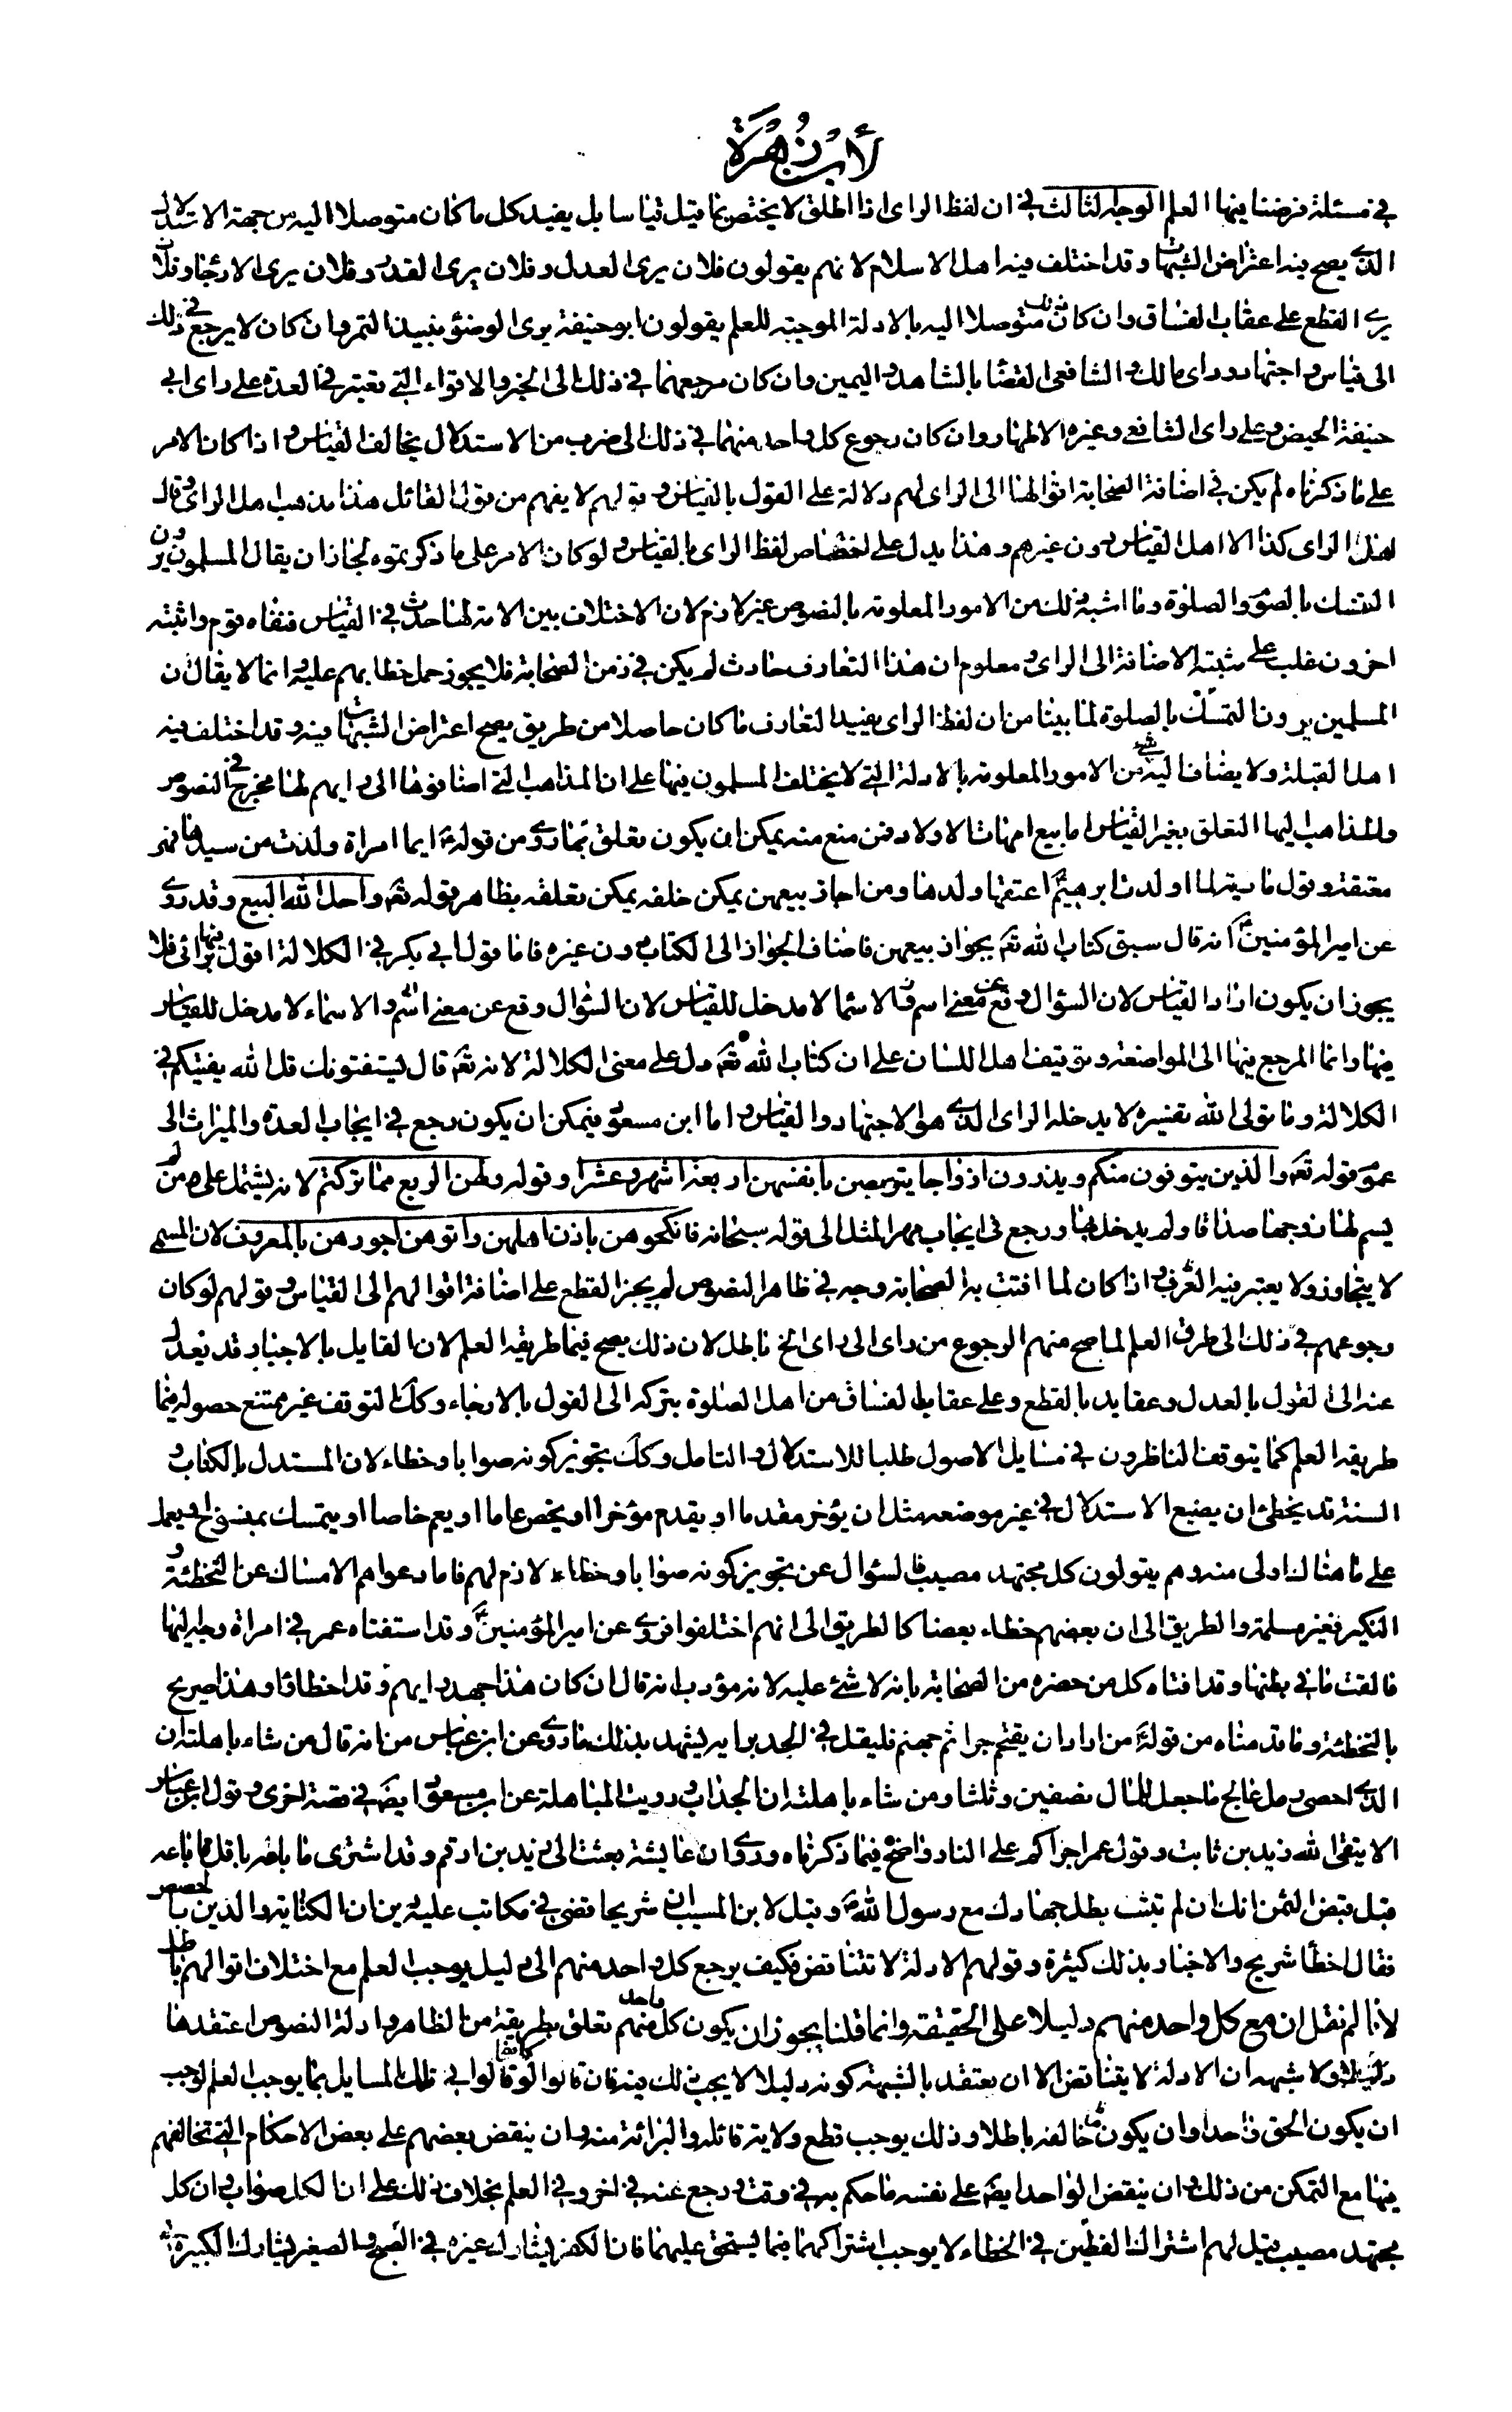 لابن زهرة
في مسئلة فرضنا فيها العلم الوجه الثالث في ان لفظ الراى اذا اطلق لا يختص بما قيل قياسا بل يفيد كل ما كان متوصلا اليه من جهة الاستدلال
الذى يصح فيه اعتراض الشبهات وقد اختلف فيه اهل الاسلام لانهم يقولون فلان يرى العدل وفلان يرى القدر وفلان يرى الارجاء وفلان
يرى القطع على عقاب الفساق وان كان ذلك متوصلا اليه بالادلة الموجبة للعلم يقولون ابو حنيفة يرى الوضوء بنبيذ التمر وان كان لا يرجع في ذلك
الى قياس واجتهاد وراى مالك والشافعى القضا بالشاهد واليمين وان كان مرجعهما في ذلك الى الخبر والاقراء التى تعتبر في العدة على راى ابى
حنيفة الحيض وعلى راى الشافعى وغيره الاطهار وان كان رجوع كل واحد منهما في ذلك الى ضرب من الاستدلال يخالف القياس واذا كان الامر
على ما ذكرناه لم يكن في اضافة الصحابة اقوالها الى الراى لهم دلالة على القول بالقياس وقولهم لا يفهم من قول القائل هذا مذهب اهل الراى وقال
اهل الراى كذا الا اهل القياس دون غيرهم وهذا يدل على اختصاص لفظ الراى بالقياس ولو كان الامر على ما ذكرتموه لجاز ان يقال المسلمون يرون
التمسك بالصوم والصلوة وما اشبه ذلك من الامور المعلومة بالنصوص غير لازم لان الاختلاف بين الامة لما حدث في القياس فنفاه قوم واثبته
اخرون غلب على مثبته الاضافة الى الراى ومعلوم ان هذا التعارف حادث لم يكن في زمن الصحابة فلا يجوز حمل خطابهم عليه وانما لا يقال ان
المسلمين يرون التمسك بالصلوة لما بينا من ان لفظ الراى يفيد التعارف ما كان حاصلا من طريق يصح اعتراض الشبهات فيه وقد اختلف فيه
اهل القبلة ولا يضاف اليه شئ من الامور المعلومة بالادلة التى لا يختلف المسلمون فيها على ان المذاهب التى اضافوها الى رايهم لها مخرج في النصوص
وللذاهب اليها التعلق بغير القياس اما بيع امهات الاولاد فمن منع منه يمكن ان يكون تعلق بما روى من قوله ع ايما امراة ولدت من سيدها فهى
معتقة وقول مارية لما ولدت ابرهيم ع اعتقها ولدها ومن اجاز بيعهن يمكن خلفه يمكن تعلقه بظاهر قوله تعه واحل الله البيع وقد روى
عن امير المؤمنين ع انه قال سبق كتاب الله تعه بجواز بيعهن فاضاف الجواز الى الكتاب دون غيره فاما قول ابى بكر في الكلالة اقول فيها برائى فلا
يجوز ان يكون اراد القياس لان السؤال وقع عن معنى اسم والاسما لا مدخل للقياس لان السؤال وقع عن معنى اسم والاسماء لا مدخل للقياس
فيها وانما المرجع فيها الى المواضعة وتوقيف اهل اللسان على ان كتاب الله تعه دل على معنى الكلالة لانه تعه قال يستفتونك قل الله يفتيكم في
الكلالة وما تولى الله تفسيره لا يدخله الراى الذى هو الاجتهاد والقياس واما ابن مسعود فيمكن ان يكون رجع في ايجاب العدة والميراث الى
عموم قوله تعه والذين يتوفون منكم ويذرون ازواجا يتربصن بانفسهن اربعة اشهر وعشرا وقوله ولهن الربع مما تركتم لانه يشتمل على من لم
يسم لها زوجها صداقا ولم يدخل بها ورجع في ايجاب مهر المثل الى قوله سبحانه فانكحوهن باذن اهلهن واتوهن اجورهن بالمعروف لان المسمى
لا يتجاوز ولا يعتبر فيه العرف واذا كان لما افتت به الصحابة وجه في ظاهر النصوص لم يجز القطع على اضافة اقوالهم الى القياس وقولهم لو كان
رجوعهم في ذلك الى طرق العلم لما صح منهم الرجوع من راى الى راى الخ باطل لان ذلك يصح فيما طريقه العلم لان القايل بالاجبار قد يعدل
عنه الى القول بالعدل وعقايد بالقطع وعلى عقاب الفساق من اهل الصلوة يتركه الى القول بالارجاء وكك التوقف غير ممتنع حصوله فيما
طريقه العلم كما يتوقف الناظرون في مسايل الاصول طلبا للاستدلال والتامل وكك تجويز كونه صوابا وخطاء لان المستدل بالكتاب و
السنة قد يخطئ ان يضع الاستدلال في غير موضعه مثل ان يؤخر مقدما او يقدم مؤخرا او يخص عاما او يعم خاصا او يتمسك بمنسوخ او يعمل
على ما هنالك اولى منه وهم يقولون كل مجتهد مصيب فالسؤال عن تجويز كونه صوابا وخطاء لازم لهم فاما دعواهم الامساك عن التخطئة و
النكير فغير مسلمة والطريق الى ان بعضهم خطاء بعضا كالطريق الى انهم اختلفوا فروى عن امير المؤمنين ع وقد استفتاه عمر في امراة وجه اليها
فالقت ما في بطنها وقد افتاه كل من حضره من الصحابة بانه لا شئ عليه لانه مؤدب انه قال ان كان هذا جهد رايهم فقد اخطاؤا وهذا صريح
بالتخطئة وما قدمناه من قوله ع من اراد ان يقتحم جراثيم جهنم فليقل في الجد برايه يشهد بذلك ما روى عن ابن عباس من انه قال من شاء باهلته ان
الذى احصى رمل عالج ما جعل للمال نصفين وثلثا ومن شاء باهلته ان الجد اب ورويت المباهلة عن ابن مسعود ايضا في قصة اخرى وقول ابن عباس
الا يتقى الله زيد بن ثابت وقول عمر اجراكم على النار واضح فيما ذكرناه وروى ان عايشة بعثت الى زيد بن ارقم وقد اشترى ما باعه باقل مما باعه
قبل قبض الثمن انك ان لم تتب بطل جهادك مع رسول الله ص وقيل لابن المسيب ان شريحا قضى في مكاتب عليه دين ان الكتابة والدين بالحصص
فقال اخطأ شريح والاخبار بذلك كثيرة وقولهم الادلة لا تتناقض فكيف يرجع كل واحد منهم الى دليل يوجب العلم مع اختلاف اقوالهم باطل
لانا لم نقل ان مع كل واحد منهم دليلا على الحقيقة وانما قلنا يجوز ان يكون كل واحد منهم تعلق بطريقة من الظاهر وادلة النصوص اعتقدها
دليلا ولا شبهه ان الادلة لا يتناقض الا ان يعتقد بالشبهة كونه دليلا لا يجب ذلك فيه فان قالوا لو كانوا قالوا في تلك المسايل بما يوجب العلم لوجب
ان يكون الحق واحدا وان يكون ما خالفه باطلا وذلك يوجب قطع ولاية قائله والبرائة منه وان ينقض بعضهم على بعض الاحكام التى تخالفهم
فيها مع التمكن من ذلك وان ينقض الواحد ايضا على نفسه ما حكم به في وقت ورجع عنه في اخر وفي العلم بخلاف ذلك على ان الكل صواب وان كل
مجتهد مصيب قيل لهم اشتراك الفظين في الخطاء لا يوجب اشتراكهما فيما يستحق عليهما فان الكفر يشارك غيره في القبح والصغير يشارك الكبيرة